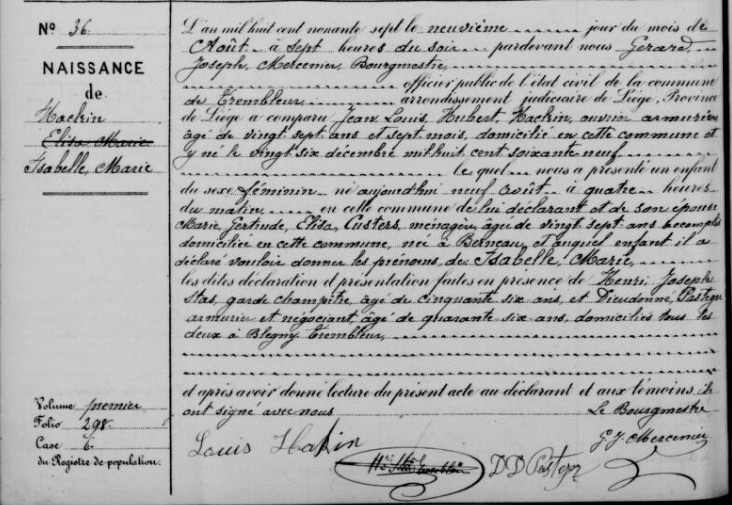 No. 36.
NAISSANCE
de
Hackin
Elisa Marie
Isabelle, Marie
L'an mil huit cent nonante sept le neuvième jour du mois de
Août à sept heures du soir pardevant nous Gérard
Joseph Mercenier, Bourgmestre
officier public de l'état civil de la commune
de Trembleur, arrondissement judiciaire de Liége, Province
de Liége a comparu Jean Louis Hubert Hackin, ouvrier armurier
âgé de vingt sept ans et sept mois, domicilié en cette commune et
y né le vingt six décembre mil huit cent soixante neuf
le quel nous a présenté un enfant
du sexe féminin né aujourd'hui neuf août à quatre heures
du matin en cette commune de lui déclarant et de son épouse
Marie, Gertrude, Elisa, Custers, ménagère, âgée de vingt sept ans accomplis
domiciliée en cette commune, née à Berneau, et auquel enfant il a
déclaré vouloir donner les prénoms de Isabelle, Marie,
les dites déclaration et présentation faites en présence de Henri Joseph
Stas, garde champêtre, âgé de cinquante six ans, et Dieudonné, Pasteger
armurier et négociant, âgé de quarante six ans, domiciliés tous les
deux à Blegny Trembleur,
et après avoir donné lecture du présent acte au déclarant et aux témoins, ils
ont signé avec nous Le Bourgmestre
Volume premier
Folio 298
Case 6.
du Registre de population.
Louis Hakin
DD Pasteger
G. J. Mercenier